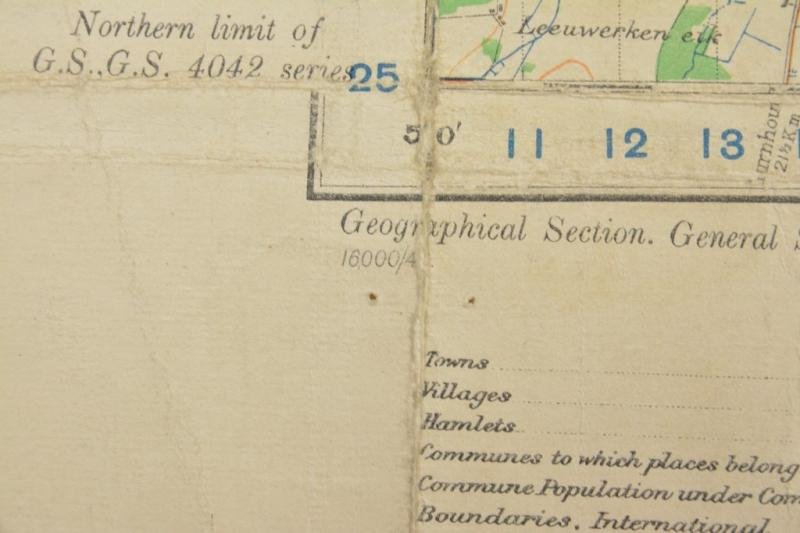 Northern limit of
G.S.,G.S. 4042 series
25
Leeuwerken
5° 0'
11 12 13
21½ Km
Geographical Section. General
16000/4
Towns
Villages
Hamlets
Communes to which places belong
Commune Population under
Boundaries. International